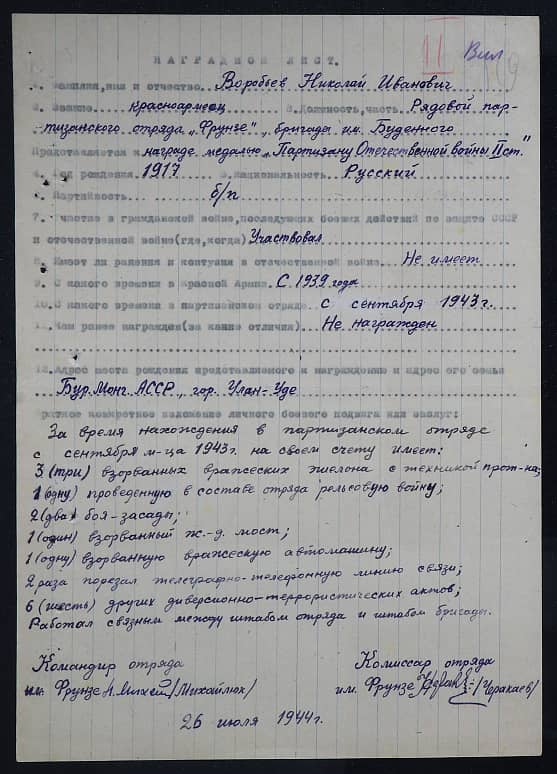 II Вил
НАГРАДНОЙ ЛИСТ.
1. Фамилия, имя и отчество Воробьев Николай Иванович
2. Звание красноармеец 3. Должность, часть Рядовой пар-
тизанского отряда „Фрунзе", бригады им. Буденного
Представляется к награде медалью „Партизану Отечественной войны II ст."
4. Год рождения 1917 5. Национальность Русский
6. Партийность б/п
7. Участие в гражданской войне, последующих боевых действий по защите СССР
и отечественной войне (где, когда) Участвовал
8. Имеет ли ранения и контузии в отечественной войне Не имеет
9. С какого времени в Красной Армии С 1939 года
10. С какого времени в партизанском отряде с сентября 1943 г.
11. Чем ранее награжден (за какие отличия) Не награжден
12. Адрес места рождения представляемого к награждению и адрес его семьи
Бур. Монг. АССР, гор. Улан-Уде
краткое конкретное изложение личного боевого подвига или заслуг:
За время нахождения в партизанском отряде
с сентября м-ца 1943 г. на своем счету имеет:
3 (три) взорванных вражеских эшелона с техникой прот-ка;
1 (одну) проведенную в составе отряда рельсовую войну;
2 (два) боя-засады;
1 (один) взорванный ж.-д. мост;
1 (одну) взорванную вражескую автомашину;
2 раза порезал телеграфно-телефонную линию связи;
6 (шесть) других диверсионно-террористических актов;
Работал связным между штабом отряда и штабом бригады.
Командир отряда Комиссар отряда
им. Фрунзе /Михайлюк/ им. Фрунзе /Черакаев/
26 июля 1944 г.